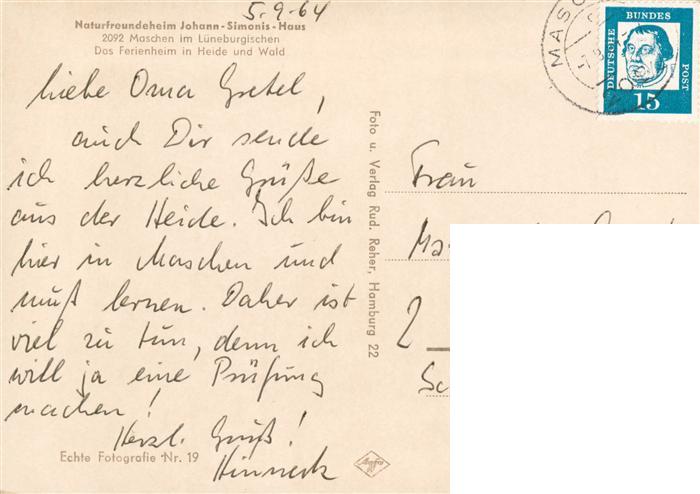 5.9.64
Naturfreundeheim Johann-Simonis-Haus
2092 Maschen im Lüneburgischen
Das Ferienheim in Heide und Wald
Liebe Oma Gretel,
auch Dir sende
ich herzliche Grüße
aus der Heide. Ich bin
hier in Maschen und
muß lernen. Daher ist
viel zu tun, denn ich
will ja eine Prüfung
machen!
Herzl. Gruß!
Hinnerk
Echte Fotografie Nr. 19
Agfa
Foto u. Verlag Rud. Reher, Hamburg 22
MASC
DEUTSCHE
BUNDES
POST
15
Frau
Ma
2
Sc